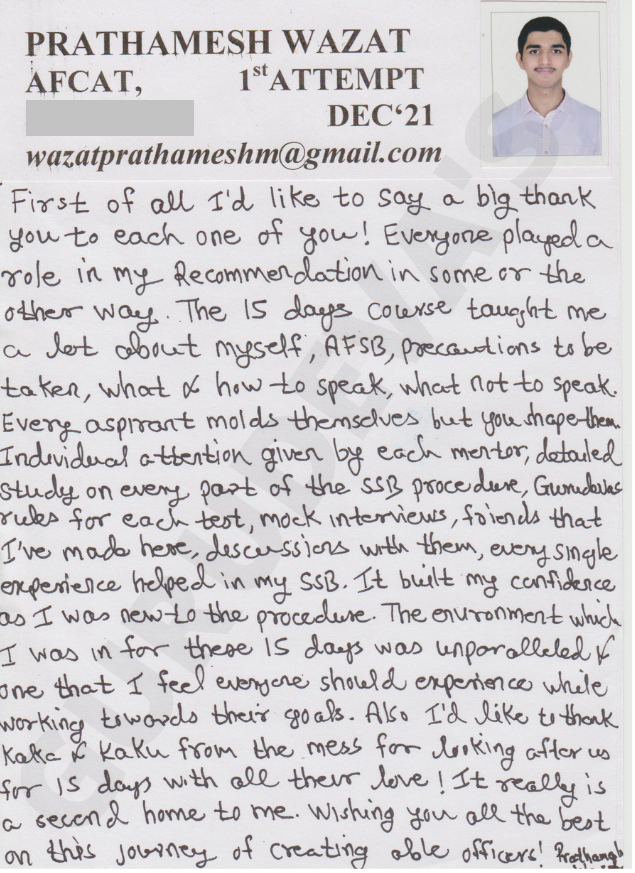 PRATHAMESH WAZAT
AFCAT, 1st ATTEMPT
DEC‘21
wazatprathameshm@gmail.com
First of all I'd like to say a big thank
you to each one of you! Everyone played a
role in my Recommendation in some or the
other way. The 15 days course taught me
a lot about myself, AFSB, precautions to be
taken, what & how to speak, what not to speak.
Every aspirant molds themselves but you shape them.
Individual attention given by each mentor, detailed
study on every part of the SSB procedure, Gurudevas
rules for each test, mock interviews, friends that
I've made here, discussions with them, every single
experience helped in my SSB. It built my confidence
as I was new to the procedure. The environment which
I was in for these 15 days was unparalleled &
one that I feel everyone should experience while
working towards their goals. Also I'd like to thank
Kaka & Kaku from the mess for looking after us
for 15 days with all their love! It really is
a second home to me. Wishing you all the best
on this journey of creating able officers!
GURUDEVA'S